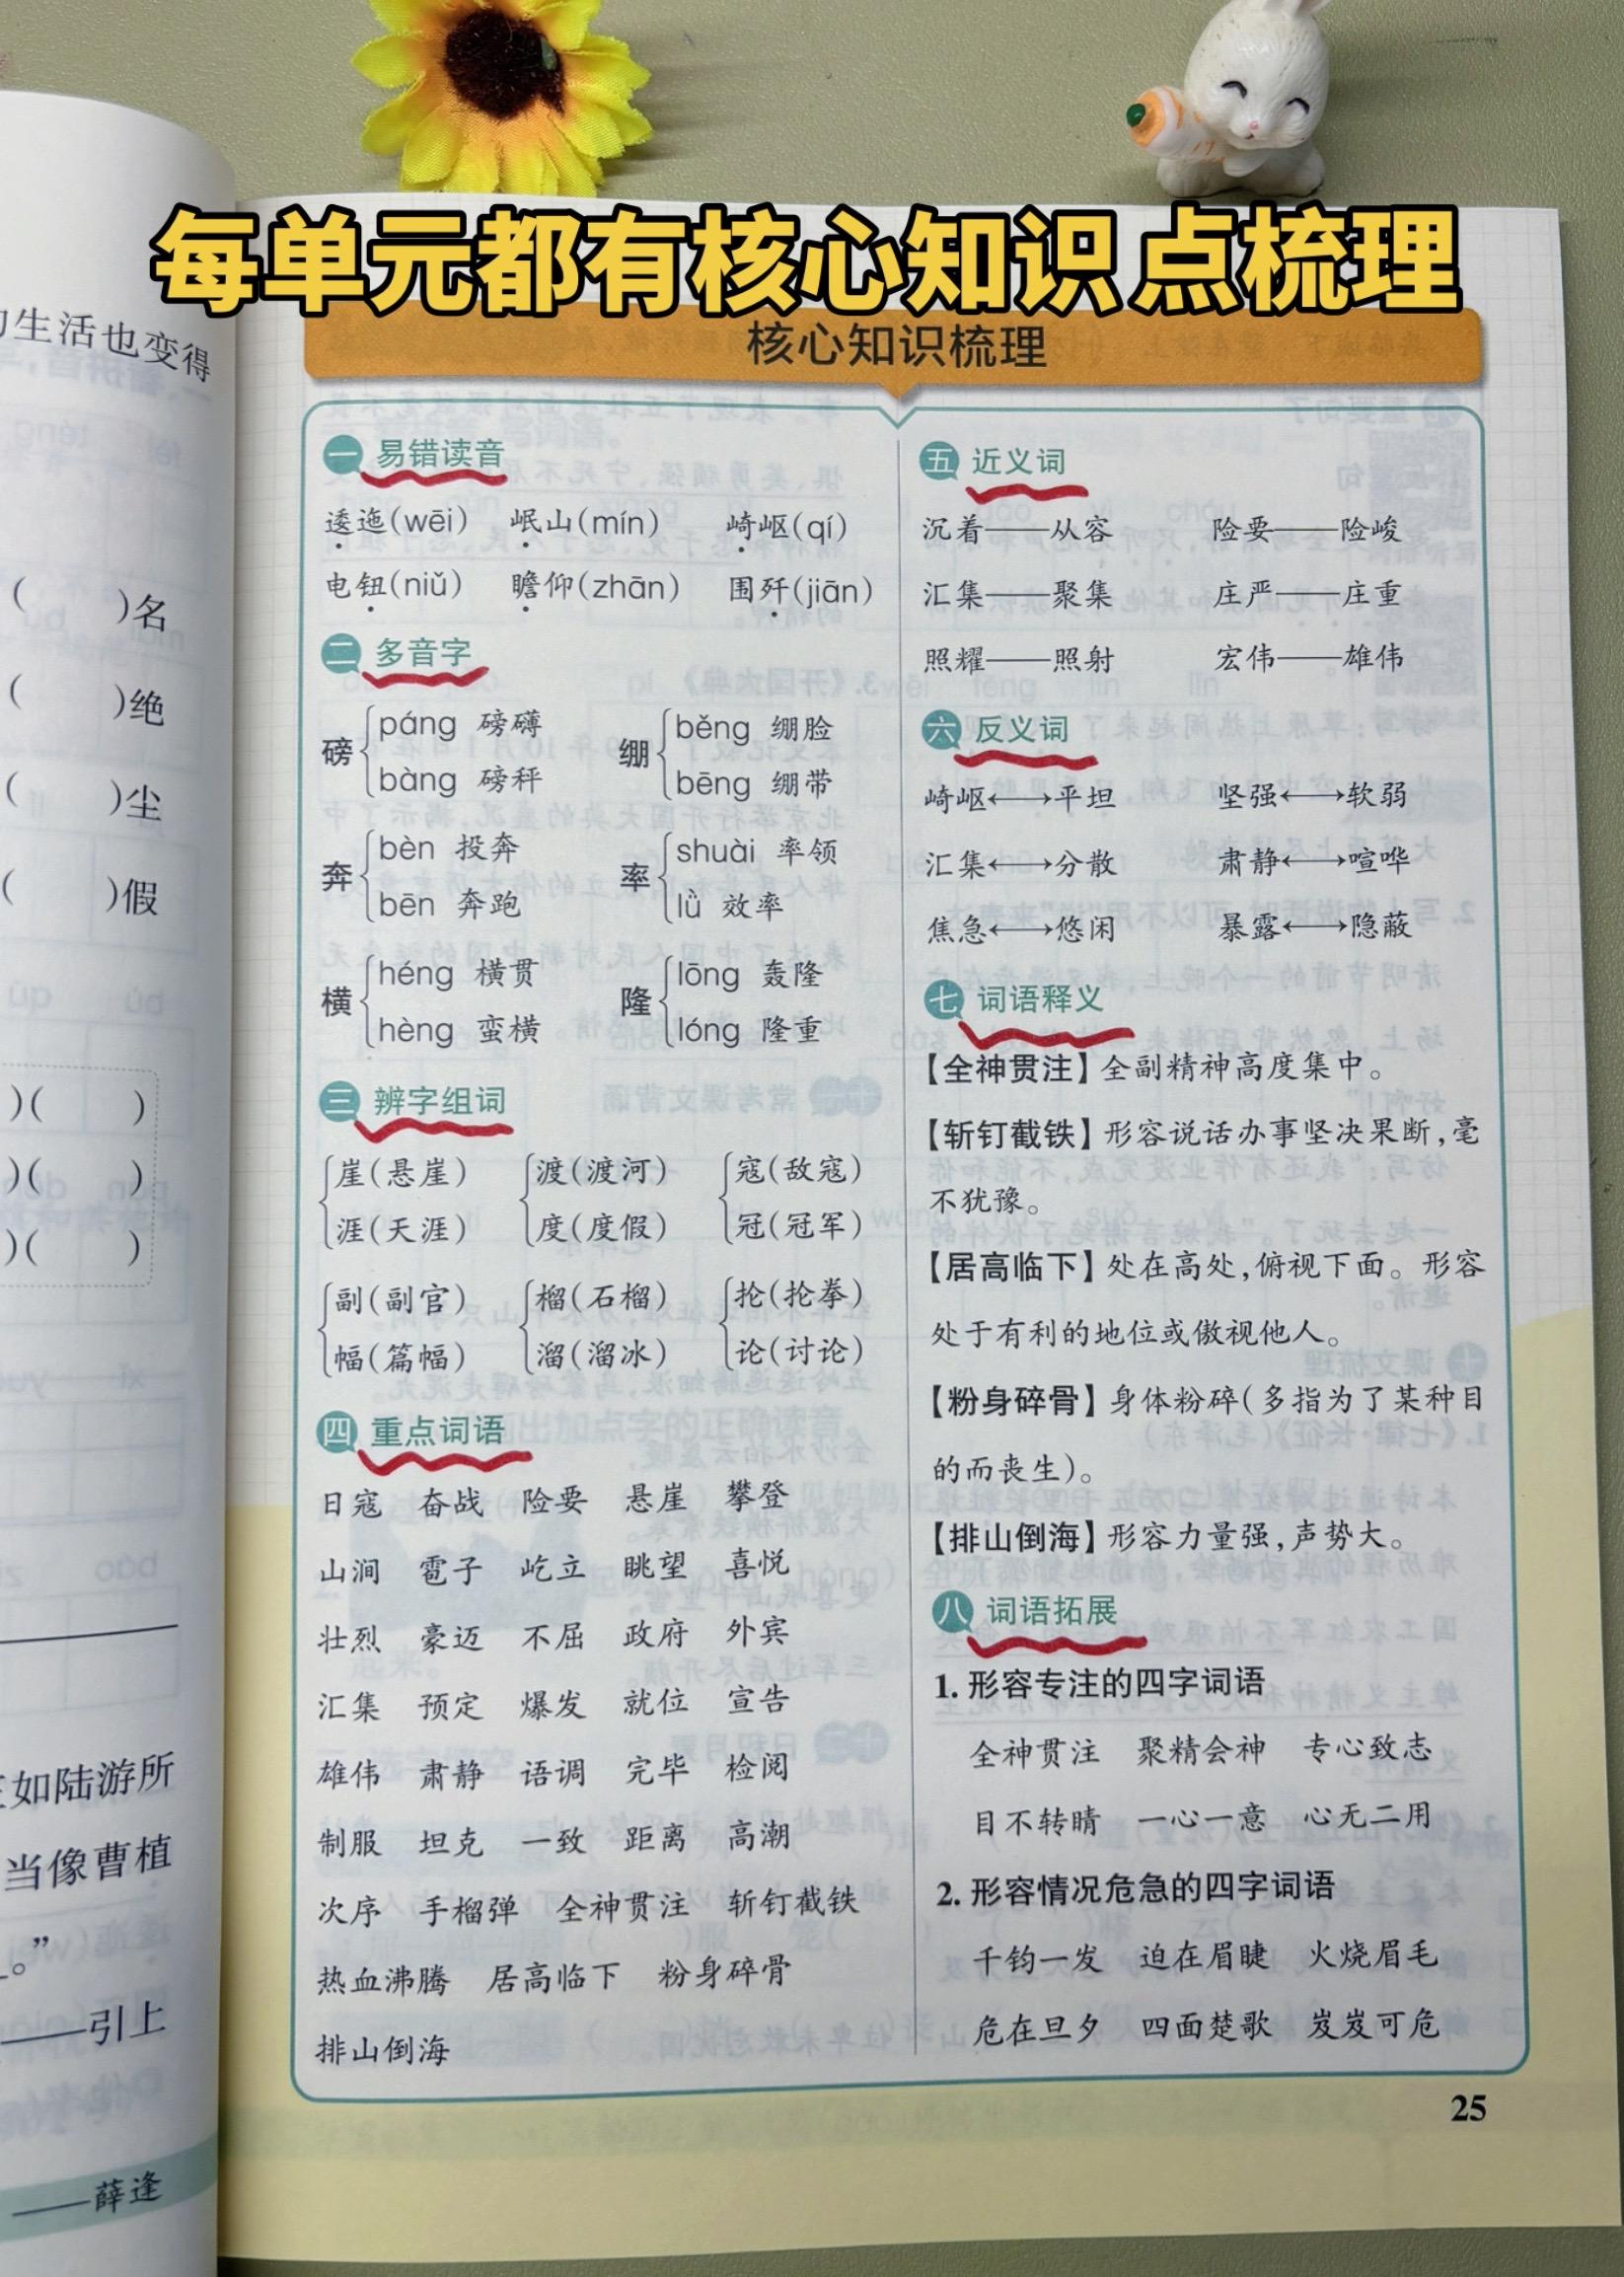 每单元都有核心知识点梳理
核心知识梳理
一 易错读音
逶迤(wēi) 岷山(mín) 崎岖(qí)
电钮(niǔ) 瞻仰(zhān) 围歼(jiān)
二 多音字
磅 páng 磅礴
bàng 磅秤
绷 běng 绷脸
bēng 绷带
奔 bèn 投奔
bēn 奔跑
率 shuài 率领
lǜ 效率
横 héng 横贯
hèng 蛮横
隆 lōng 轰隆
lóng 隆重
三 辨字组词
崖(悬崖) 渡(渡河) 寇(敌寇)
涯(天涯) 度(度假) 冠(冠军)
副(副官) 榴(石榴) 抡(抡拳)
幅(篇幅) 溜(溜冰) 论(讨论)
四 重点词语
日寇 奋战 险要 悬崖 攀登
山涧 雹子 屹立 眺望 喜悦
壮烈 豪迈 不屈 政府 外宾
汇集 预定 爆发 就位 宣告
雄伟 肃静 语调 完毕 检阅
制服 坦克 一致 距离 高潮
次序 手榴弹 全神贯注 斩钉截铁
热血沸腾 居高临下 粉身碎骨
排山倒海
五 近义词
沉着——从容 险要——险峻
汇集——聚集 庄严——庄重
照耀——照射 宏伟——雄伟
六 反义词
崎岖⟷平坦 坚强⟷软弱
汇集⟷分散 肃静⟷喧哗
焦急⟷悠闲 暴露⟷隐蔽
七 词语释义
【全神贯注】全副精神高度集中。
【斩钉截铁】形容说话办事坚决果断,毫
不犹豫。
【居高临下】处在高处,俯视下面。形容
处于有利的地位或傲视他人。
【粉身碎骨】身体粉碎(多指为了某种目
的而丧生)。
【排山倒海】形容力量强,声势大。
八 词语拓展
1. 形容专注的四字词语
全神贯注 聚精会神 专心致志
目不转睛 一心一意 心无二用
2. 形容情况危急的四字词语
千钧一发 迫在眉睫 火烧眉毛
危在旦夕 四面楚歌 岌岌可危
25
生活也变得
( )名
( )绝
( )尘
( )假
)( )
)( )
)( )
如陆游所
当像曹植
。”
——引上
——薛逢